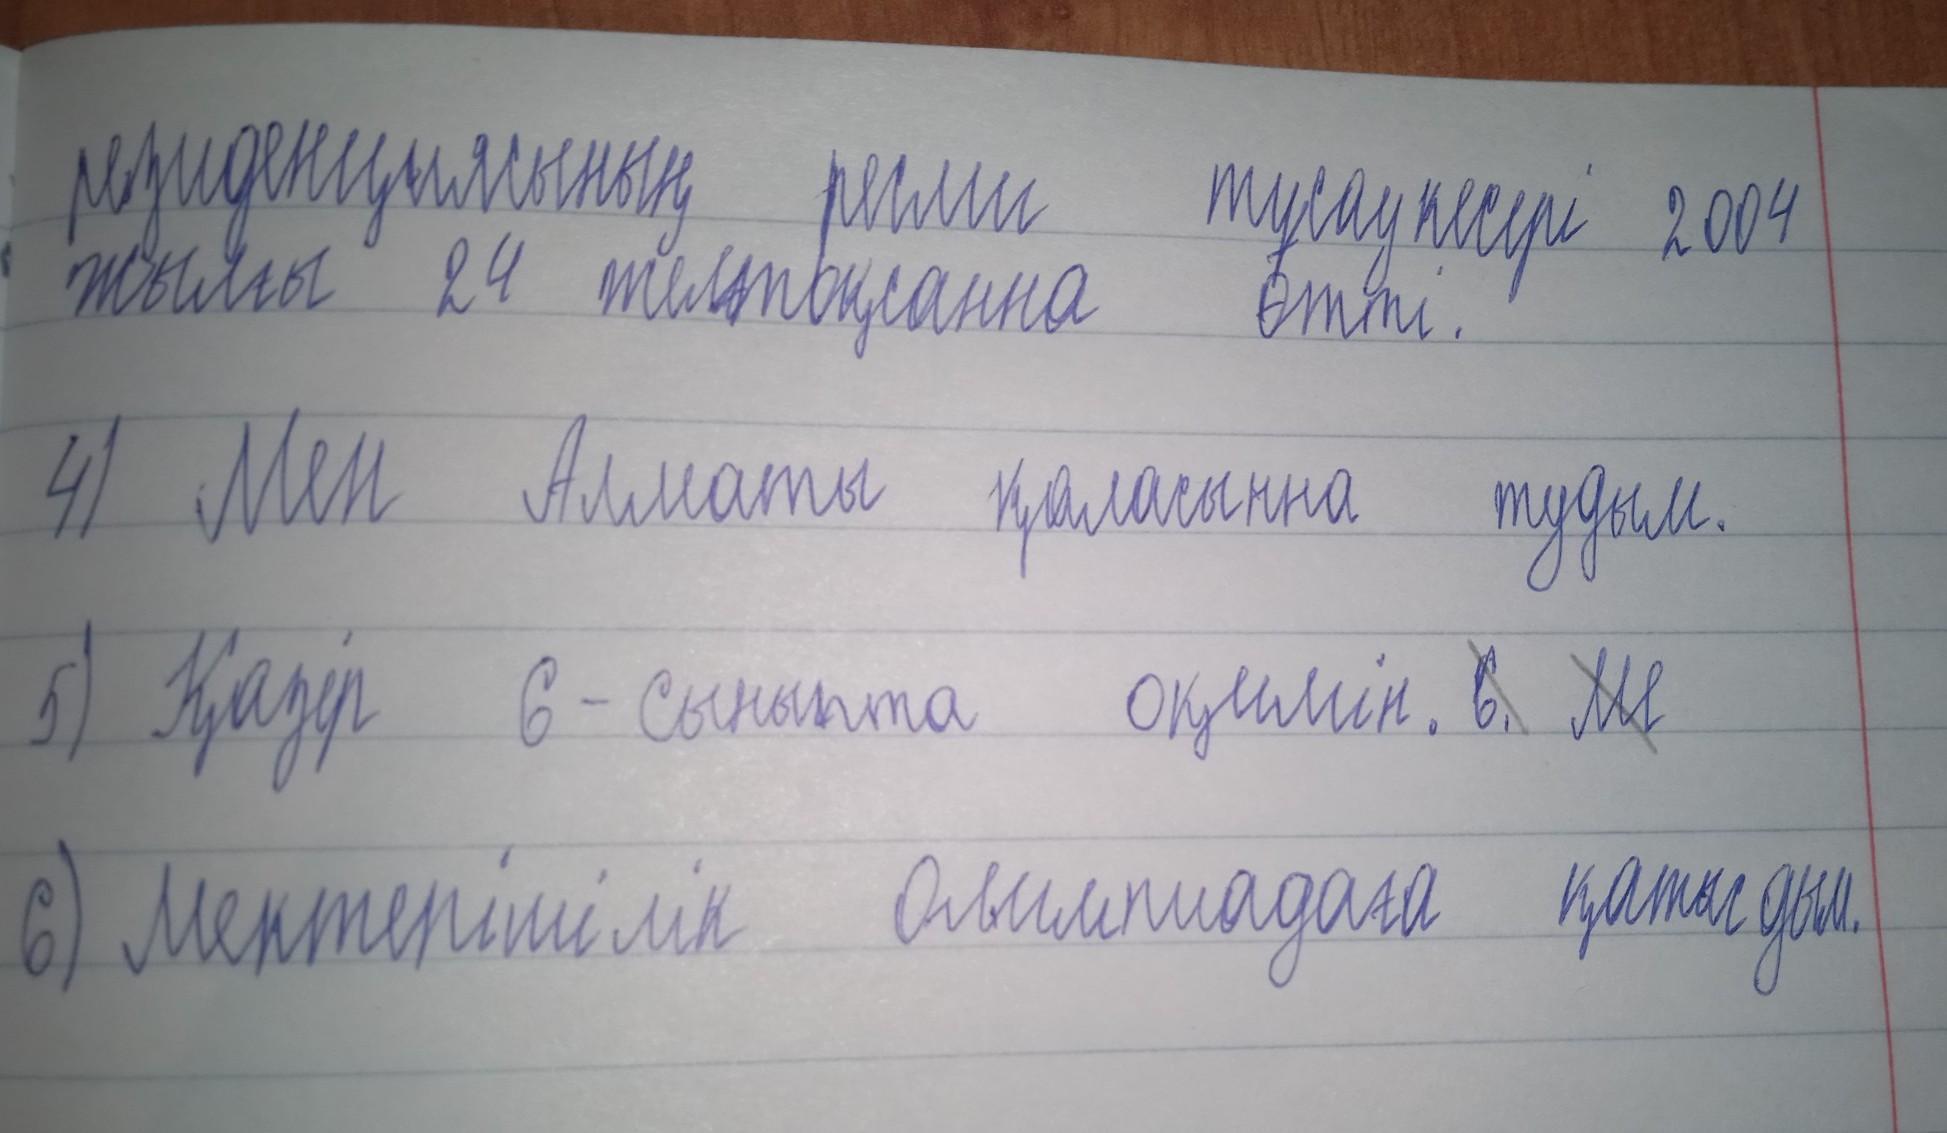 резиденциясының ресми тұсаукесері 2004
жылғы 24 желтоқсанна өтті.
4) Мен Алматы қаласынна тудым.
5) Қазір 6-сыныпта оқимін. 6. Ме
6) Мектепішілік олимпиадаға қатысдым.